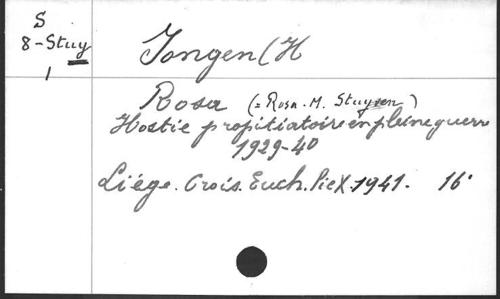 S
8-Stuy
1
Jongen (H
Rosa (= Rosa. M. Stuyven)
Hostie propitiatoire en pleine guerre
1929-40
Liége. Crois. Euch. Pie X. 1941. 16°